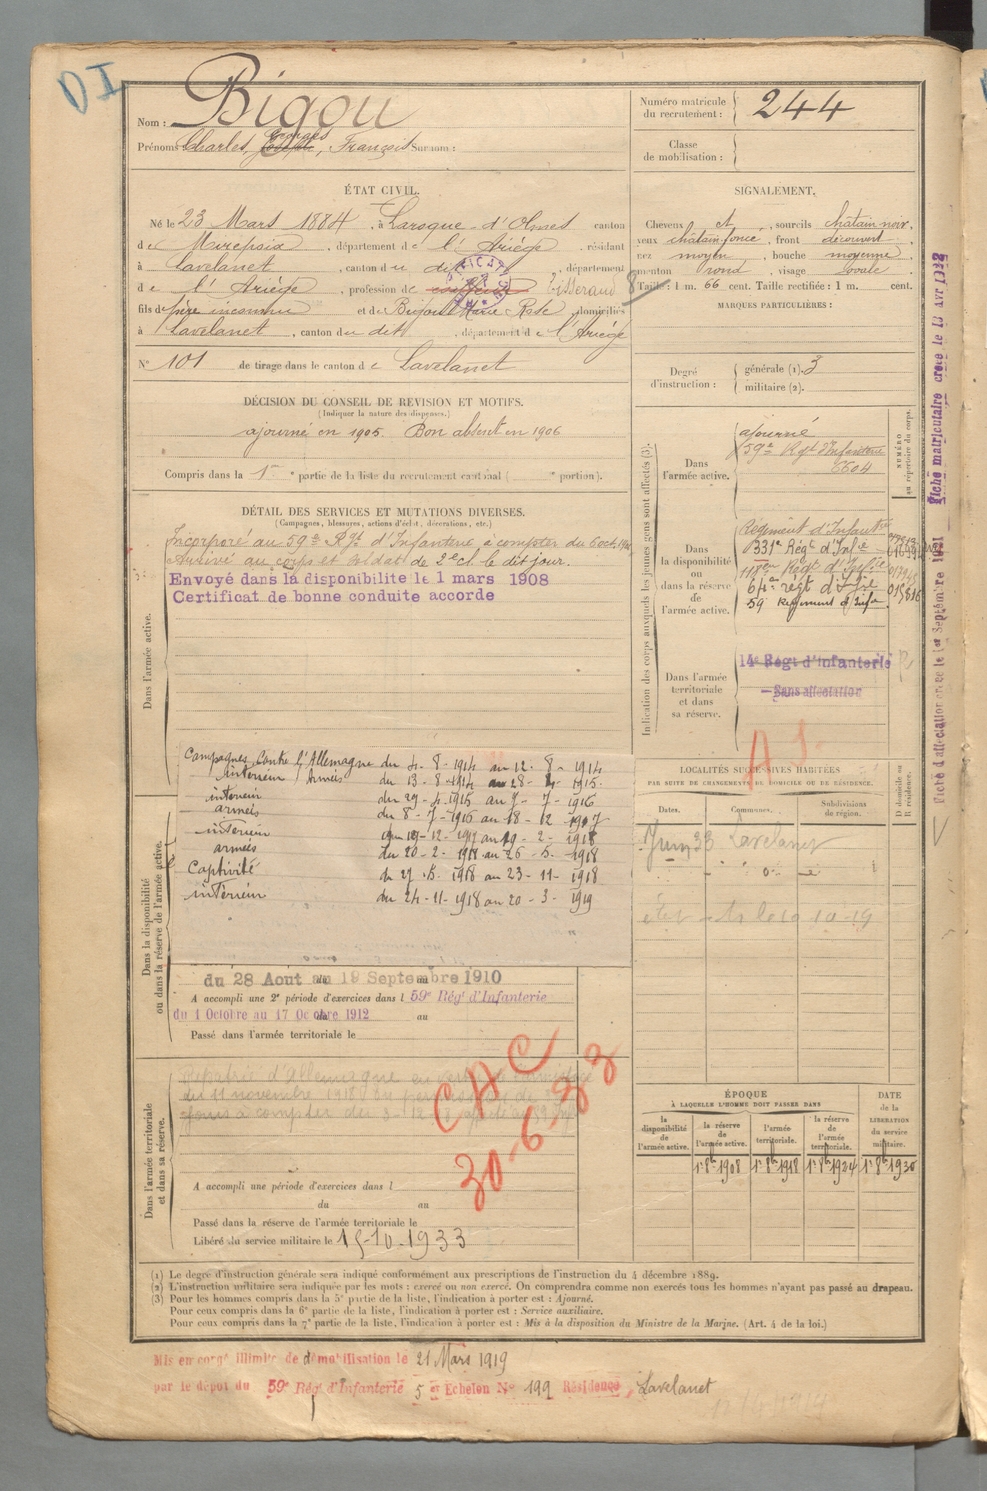 Nom : Bigou
Prénoms : Charles, Georges, François Surnom :
Numéro matricule du recrutement : 244
Classe de mobilisation :
ÉTAT CIVIL.
Né le 23 Mars 1884, à Laroque-d'Olmes canton
de Mirepoix, département de l'Ariège, résidant
à Lavelanet, canton du dit, département
de l'Ariège, profession de Tisserand
fils de père inconnu et de Marie Rose, domiciliés
à Lavelanet, canton du dit, département de l'Ariège
N° 101 de tirage dans le canton de Lavelanet
SIGNALEMENT.
Cheveux et, sourcils châtain noir,
yeux châtain foncé, front découvert,
nez moyen, bouche moyenne,
menton rond, visage ovale.
Taille : 1 m. 66 cent. Taille rectifiée : 1 m. cent.
MARQUES PARTICULIÈRES :
Degré d'instruction : générale (1). 3
militaire (2).
DÉCISION DU CONSEIL DE REVISION ET MOTIFS.
(Indiquer la nature des dispenses.)
ajourné en 1905. Bon absent en 1906
Compris dans la 1re partie de la liste du recrutement cantonal ( e portion).
DÉTAIL DES SERVICES ET MUTATIONS DIVERSES.
(Campagnes, blessures, actions d'éclat, décorations, etc.)
Dans l'armée active.
Incorporé au 59e Régt d'Infanterie à compter du 6 oct.
Arrivé au corps et soldat de 2e cl. le dit jour.
Envoyé dans la disponibilite le 1 mars 1908
Certificat de bonne conduite accorde
Campagnes Contre l'Allemagne du 4-8-1914 au 12-8-1914
intérieur
Armées du 13-8-1914 au 28-4-1915
intérieur du 29-4-1915 au 7-7-1916
armées du 8-7-1916 au 18-12-1917
intérieur du 19-12-1917 au 19-2-1918
armées du 20-2-1918 au 26-5-1918
Captivité du 27-5-1918 au 23-11-1918
intérieur du 24-11-1918 au 20-3-1919
Dans la disponibilité ou dans la réserve de l'armée active.
du 28 Aout au 19 Septembre 1910
A accompli une 2e période d'exercices dans l 59e Régt d'Infanterie
du 1 Octobre au 17 Octobre 1912 au
Passé dans l'armée territoriale le
Dans l'armée territoriale et dans sa réserve.
Rapatrié d'Allemagne en vertu de
du 11 novembre 1918
jours à compter du 3-12-
CAC
30-6-33
A accompli une période d'exercices dans l
du au
Passé dans la réserve de l'armée territoriale le
Libéré du service militaire le 15-10-1933
Indication des corps auxquels les jeunes gens sont affectés (3).
NUMÉRO au répertoire du corps.
Dans l'armée active.
ajourné
59e Régt d'Infanterie
6604
Dans la disponibilité ou dans la réserve de l'armée active.
Régiment d'Infanterie
331e Régt d'Infie
118e Régt d'Infie
64e régt d'Infie 015816
59 Régiment d'Infa
Dans l'armée territoriale et dans sa réserve.
14e Régt d'Infanterie
Sans affectation
LOCALITÉS SUCCESSIVES HABITÉES
PAR SUITE DE CHANGEMENTS DE DOMICILE OU DE RÉSIDENCE.
Dates. Communes. Subdivisions de région. D domicile ou R résidence.
Juin 33 Lavelanet
10-10-19
ÉPOQUE
À LAQUELLE L'HOMME DOIT PASSER DANS
la disponibilité de l'armée active. la réserve de l'armée active. l'armée territoriale. la réserve de l'armée territoriale. DATE de la LIBÉRATION du service militaire.
1r 8bre 1908 1r 8bre 1918 1r 8bre 1924 1r 8bre 1930
(1) Le degré d'instruction générale sera indiqué conformément aux prescriptions de l'instruction du 4 décembre 1889.
(2) L'instruction militaire sera indiquée par les mots : exercé ou non exercé. On comprendra comme non exercés tous les hommes n'ayant pas passé au drapeau.
(3) Pour les hommes compris dans la 5e partie de la liste, l'indication à porter est : Ajourné.
Pour ceux compris dans la 6e partie de la liste, l'indication à porter est : Service auxiliaire.
Pour ceux compris dans la 7e partie de la liste, l'indication à porter est : Mis à la disposition du Ministre de la Marine. (Art. 4 de la loi.)
Mis en congé illimité de démobilisation le 21 Mars 1919
par le dépot du 59e Régt d'Infanterie 5 er Echelon N° 199 Résidence, Lavelanet
Fiche matriculaire créée le
Fiche d'affectation créée le 1er Septembre